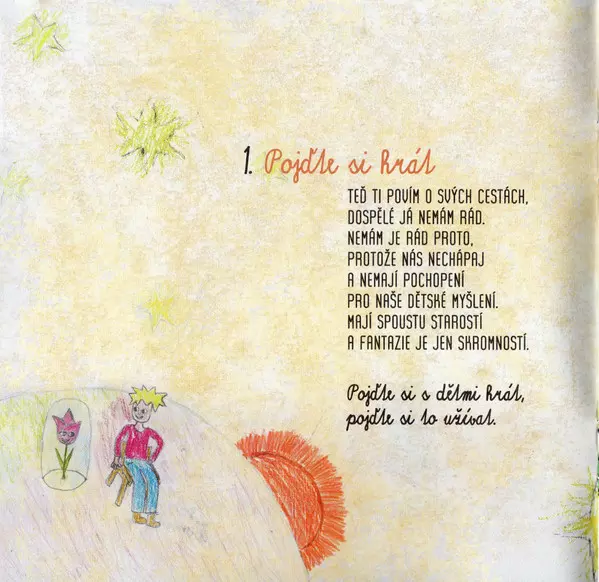 1. Pojďte si hrát
TEĎ TI POVÍM O SVÝCH CESTÁCH,
DOSPĚLÉ JÁ NEMÁM RÁD.
NEMÁM JE RÁD PROTO,
PROTOŽE NÁS NECHÁPAJ
A NEMAJÍ POCHOPENÍ
PRO NAŠE DĚTSKÉ MYŠLENÍ.
MAJÍ SPOUSTU STAROSTÍ
A FANTAZIE JE JEN SKROMNOSTÍ.
Pojďte si s dětmi hrát,
pojďte si to užívat.